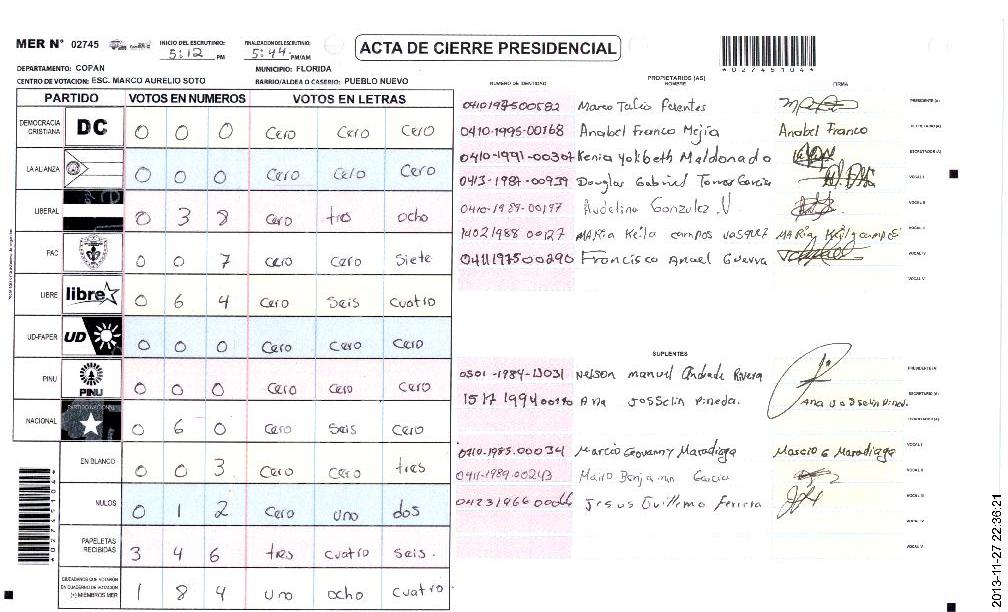 MER Nº 02745
INICIO DEL ESCRUTINIO: 5:12 PM
FINALIZACION DEL ESCRUTINIO: 5:44 PM/AM
ACTA DE CIERRE PRESIDENCIAL
*02745104*
DEPARTAMENTO: COPAN MUNICIPIO: FLORIDA
CENTRO DE VOTACION: ESC. MARCO AURELIO SOTO BARRIO/ALDEA O CASERIO: PUEBLO NUEVO
PARTIDO VOTOS EN NUMEROS VOTOS EN LETRAS
DEMOCRACIA CRISTIANA DC 0 0 0 Cero Cero Cero
LA ALIANZA 0 0 0 Cero Cero Cero
LIBERAL 0 3 8 Cero tres ocho
PAC 0 0 7 Cero Cero Siete
LIBRE libre 0 6 4 Cero Seis Cuatro
UD-FAPER UD 0 0 0 Cero Cero Cero
PINU PINU 0 0 0 Cero Cero Cero
NACIONAL 0 6 0 Cero Seis Cero
EN BLANCO 0 0 3 Cero Cero tres
NULOS 0 1 2 Cero uno dos
PAPELETAS RECIBIDAS 3 4 6 tres cuatro seis.
CIUDADANOS QUE VOTARON EN CUADERNO DE VOTACION (+) MIEMBROS MER 1 8 4 uno ocho cuatro
*02745104*
PROPIETARIOS (AS)
NUMERO DE IDENTIDAD NOMBRE FIRMA
Marco Tulio PRESIDENTE (A)
0410-1995-00168 Anabel Franco Mejia Anabel Franco SECRETARIO (A)
0410-1991-00307 Kenia Yolibeth Maldonado ESCRUTADOR (A)
0413-1987-00939 Douglas Gabriel Torres Garcia VOCAL I
0410-1989-00197 Audelina Gonzalez V VOCAL II
1402 1988 00127 MARia Keila campos vasquez MARia Keila campos VOCAL III
0411197500290 Francisco Anael Guerra VOCAL IV
VOCAL V
SUPLENTES
0501-1984-13031 Nelson manuel Andrade Rivera PRESIDENTE (A)
Ana Josselin Pineda. Ana Josselin Pined. SECRETARIO (A)
ESCRUTADOR (A)
0410-1985-00034 Marcio Geovanny Maradiaga Marcio G Maradiaga VOCAL I
0411-1989-00243 Mario Benjamin Garcia VOCAL II
Jesus Guillermo VOCAL III
VOCAL IV
VOCAL V
2013-11-27 22:36:21